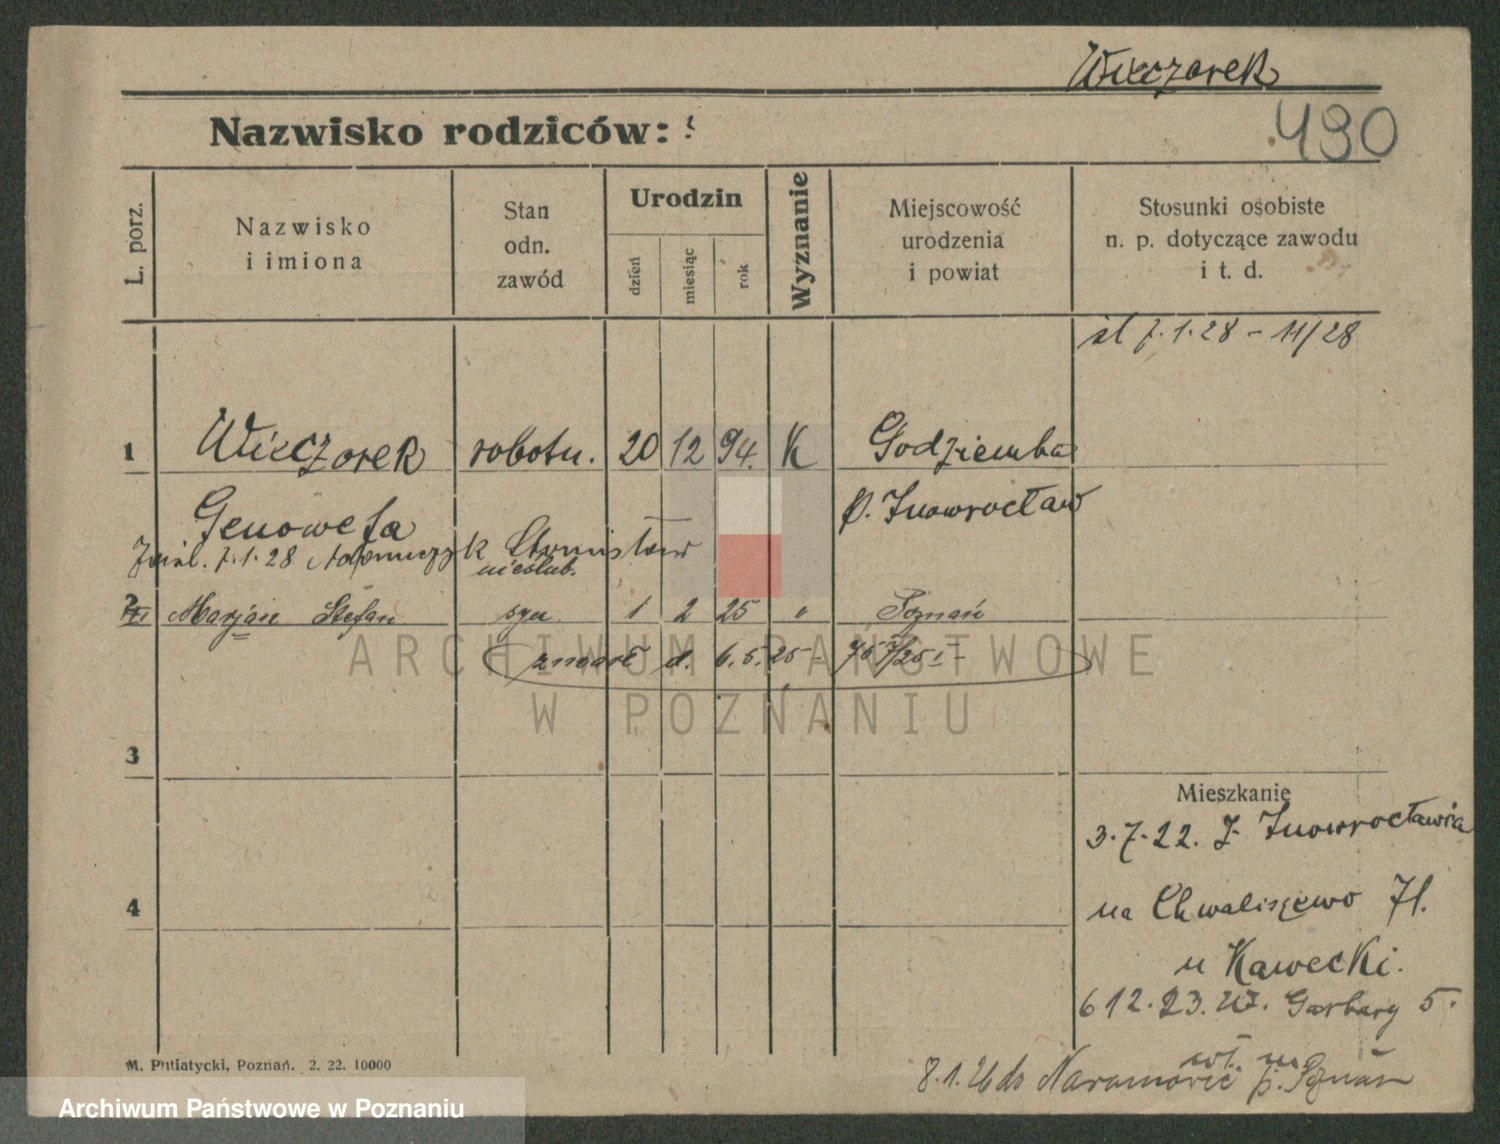 Wieczorek
Nazwisko rodziców:
490
L. porz.
Nazwisko
i imiona
Stan
odn.
zawód
Urodzin
dzień
miesiąc
rok
Wyznanie
Miejscowość
urodzenia
i powiat
Stosunki osobiste
n. p. dotyczące zawodu
i t. d.
śl 7.1.28 - 11/28
1 Wieczorek robotn. 20 12 94. K Godziemba
Genowefa p. Inowrocław
7.1.28 Adamczyk Stanisław
nieślub.
2 Marjan Stefan syn 1 2 25 " Poznań
zmarł d. 6.5.25 -
3
4
Mieszkanie
3.7.22. z Inowrocławia
na Chwaliszewo 71.
u Kawecki.
6 12.23. Garbary 5.
8.1.26 do Naramowic p. Poznań
M. Putiatycki, Poznań. 2. 22. 10000
ARCHIWUM PAŃSTWOWE
W POZNANIU
Archiwum Państwowe w Poznaniu